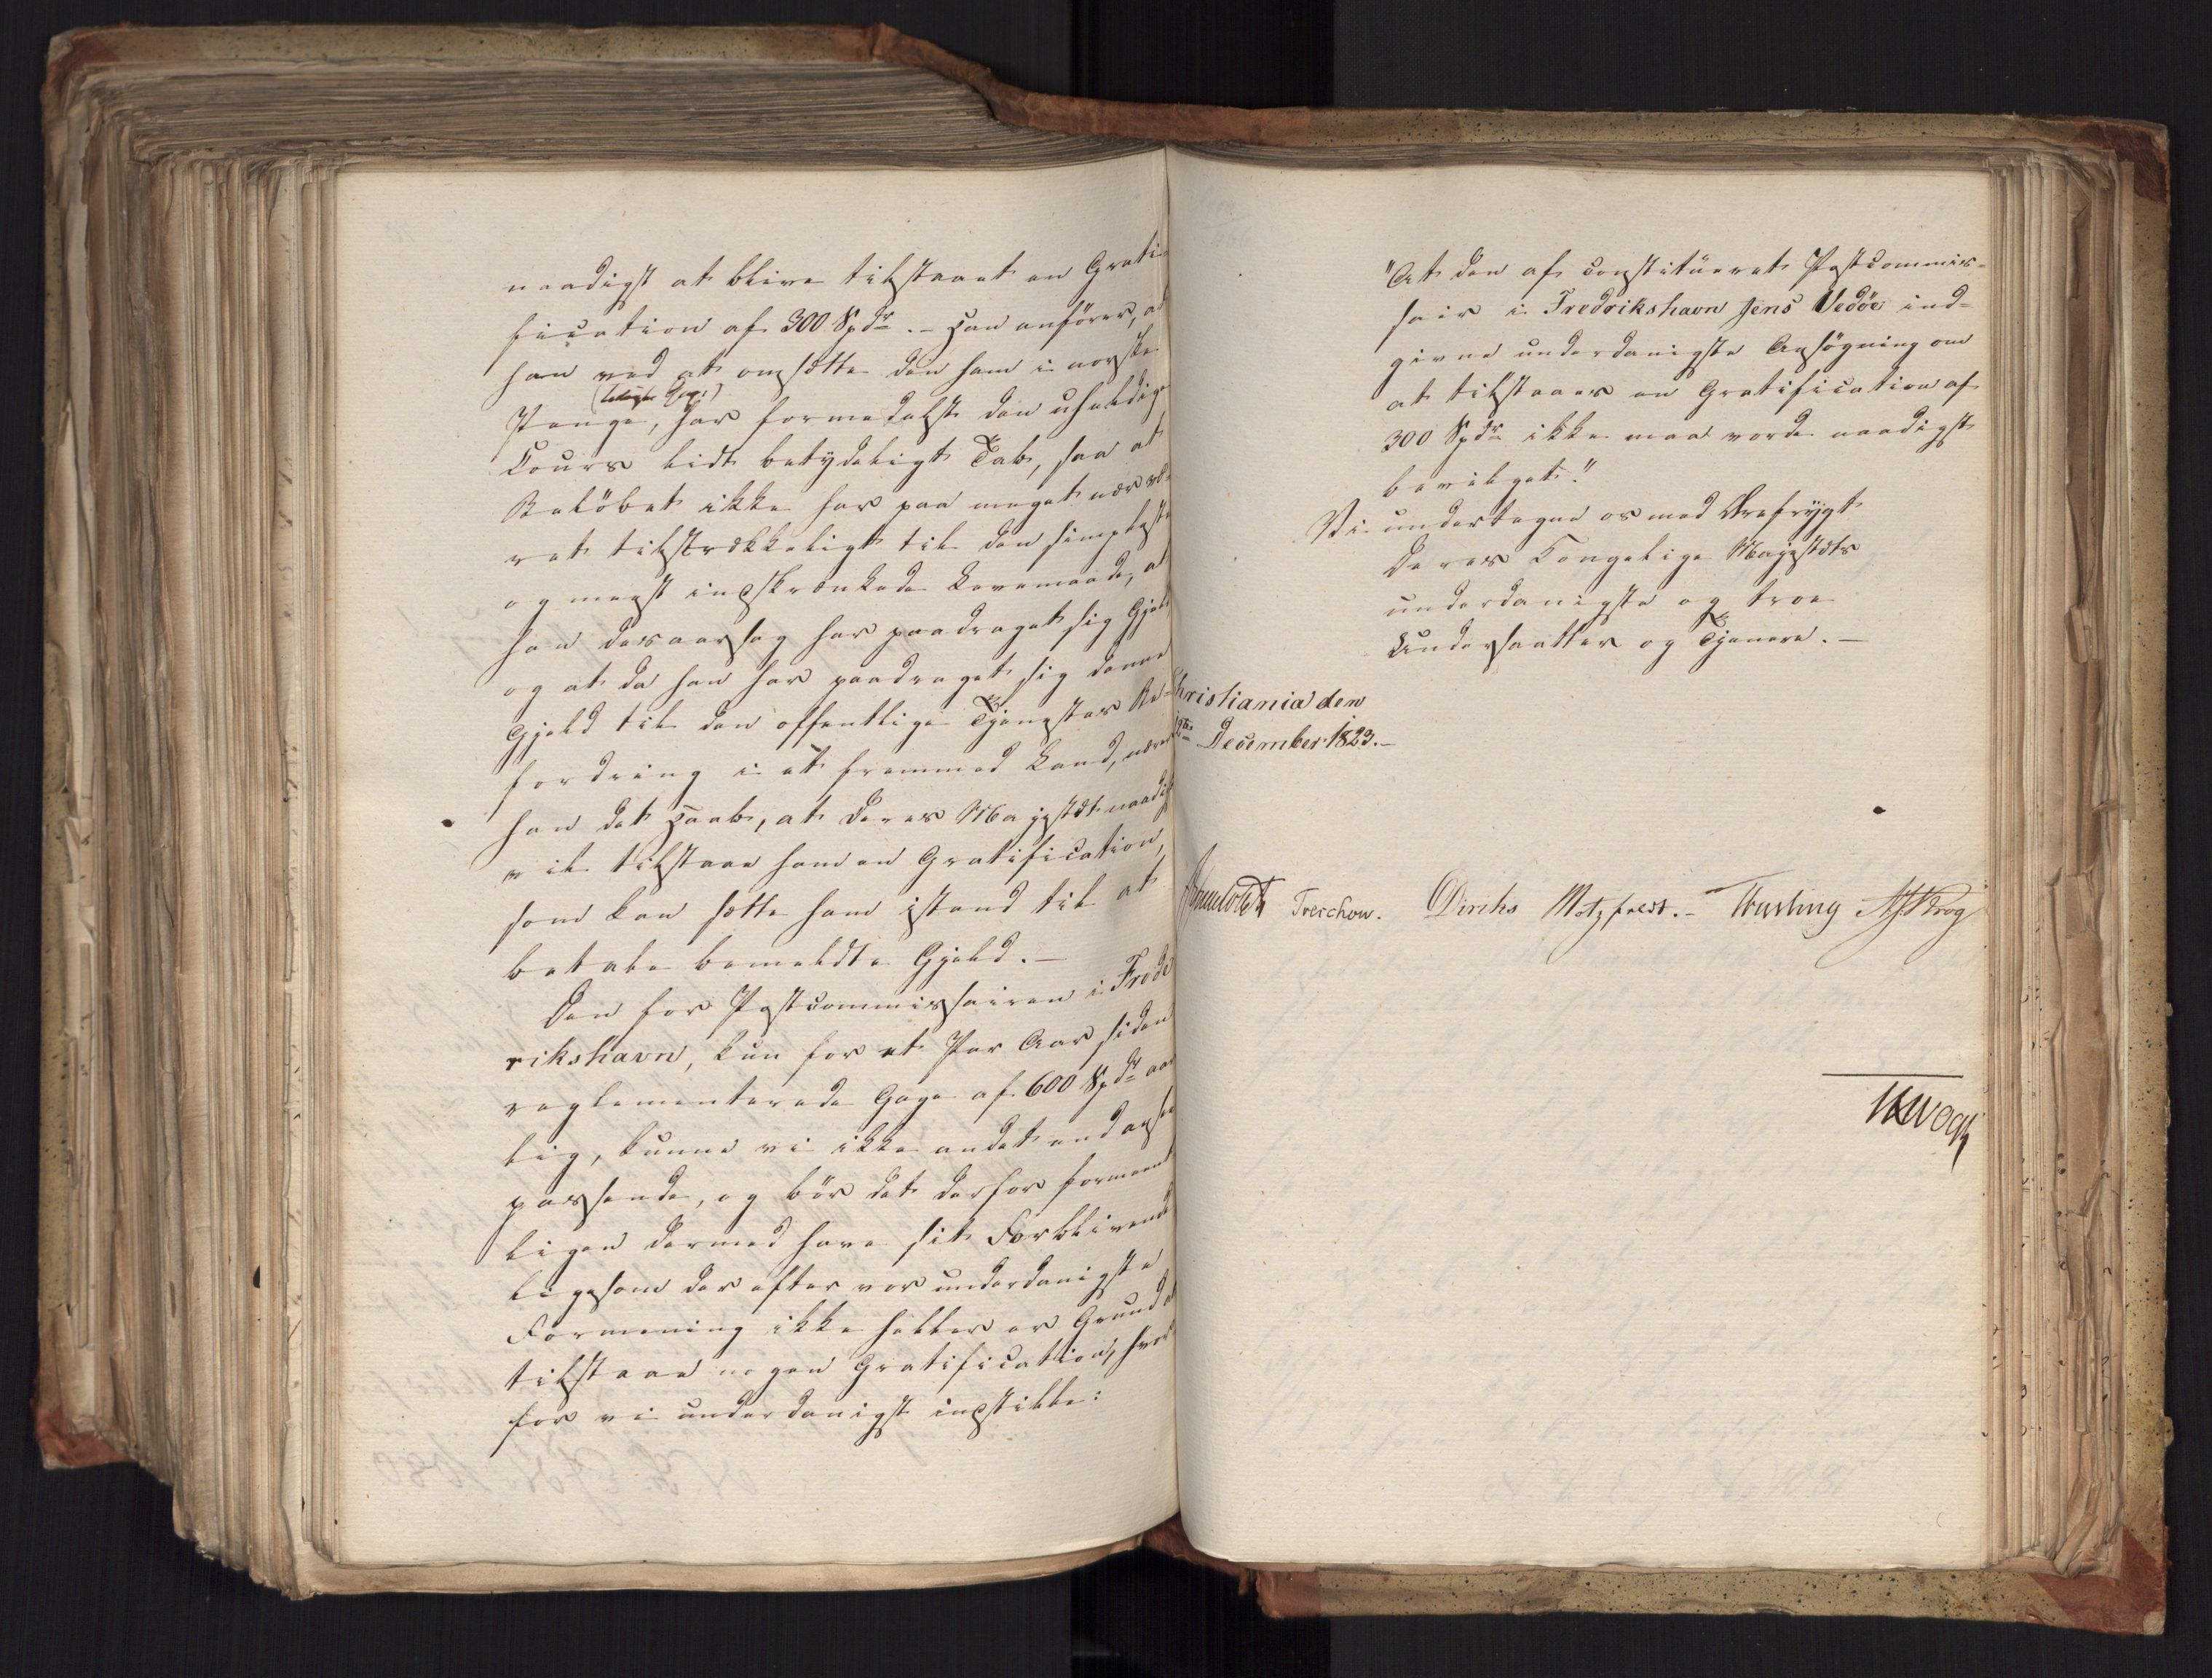 naadigst at blive tilstaaet en Grati-
fication af 300 Spdr. - Han anförer, at
han ved at omsætte den ham i norske
Penge, har formedelst den uheldige
Cours lidt betydeligt Tab, saa at
Belöbet ikke har paa meget nær væ-
ret tilstrækkeligt til den simpleste
og meest indskrænkede Levemaade, at
han desaarsag har paadraget sig Gjeld
og at da han har paadraget sig denne
Gjeld til den offentlige Tjenestes Be-
fordring i et fremmed Land, nærer
han det Haab, at Deres Majestæt naadigst
vil tilstaae ham en Gratification,
som kan sætte ham istand til at
betale bemeldte Gjeld. -
Den for Postcommissairen i Frede
rikshavn, kun for et Par Aar siden
reglementerede Gage af 600 Spdr aar
lig, kunne vi ikke andet end ansee
passende, og bör det derfor formeent
ligen dermed have sit Forblivende
ligesom der efter vor underdanigste
Formening ikke heller er Grund at
tilstaae nogen Gratification, hvor
for vi underdanigst indstille:
"At den af constitueret Postcommis-
sair i Fredrikshavn Jens Vedöe ind-
givne underdanigste Ansögning om
at tilstaaes en Gratification af
300 Spdr ikke maa vorde naadigst
bevilget."
Vi undertegne os med Ærefrygt
Deres Kongelige Majestæts
underdanigste og troe
Undersaatter og Tjenere. -
Christiania den
December 1823. -
Treschow. Diriks Motzfeldt. - Krog